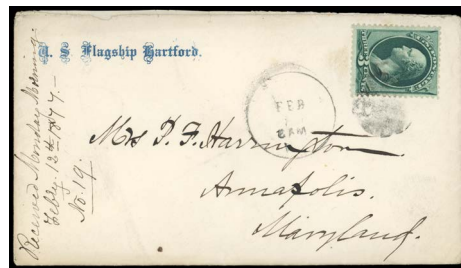 U. S. Flagship Hartford.
FEB
8AM
Mrs P. F. Harrington
Annapolis.
Maryland.
Received Monday Morning.
Feby. 12th 1877.—
No. 19.